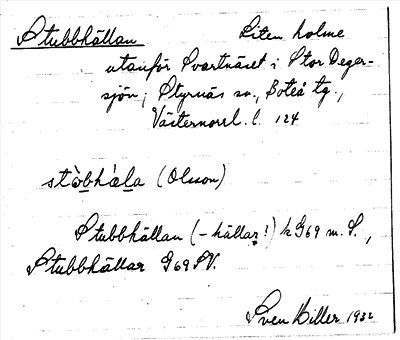 Stubbhällan Liten holme
utanför Svartnäset i Stor Deger-
sjön, Styrnäs sn., Boteå tg.,
Västernorrl. l. 124
stòbhàla (Olsson)
Stubbhällan (-hällar!) k G69 m. S.,
Stubbhällar G69 SV.
Sven Hiller 1932